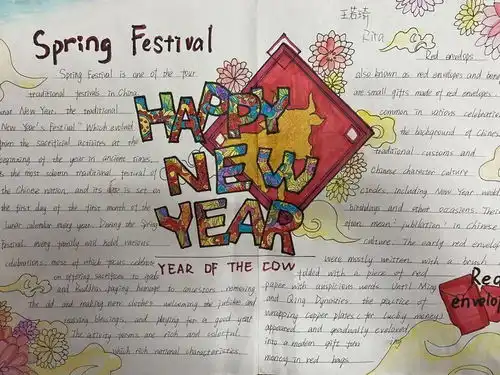 Spring Festival
Spring Festival is one of the four
traditional festivals in China.
the traditional
New Year's Festival" Which evolved
from the sacrificial activities at the
beginning of the year in ancient times,
is the most solemn traditional festival of
the Chinese nation, and its date is set on
the first day of the first month of the
lunar calendar every year. During the Spring
Festival, every family will hold various
celebrations, most of which focus
on offering sacrifices to gods
and Buddhas, paying homage to ancestors, removing
the old and making new clothes welcoming the jubilee and
blessings, and praying for a good year
The activity forms are rich and colorful,
which rich national characteristics.
HAPPY
NEW
YEAR
YEAR OF THE COW
王若琦
Rita
Red envelops
also known as red envelopes and
are small gifts made of red envelopes
common in various celebration
the background of Chinese
traditional customs and
Chinese character culture
circles, including New Year
birthdays and other occasions. The
often mean "jubilation" in Chinese
culture. The early red envelope
were mostly written with a brush
folded with a piece of red
paper with auspicious words. Until Ming
and Qing Dynasties, the practice of
wrapping copper plates (for lucky money)
appeared and gradually evolved
into a modern gift
money in red bags.
Red
envelop